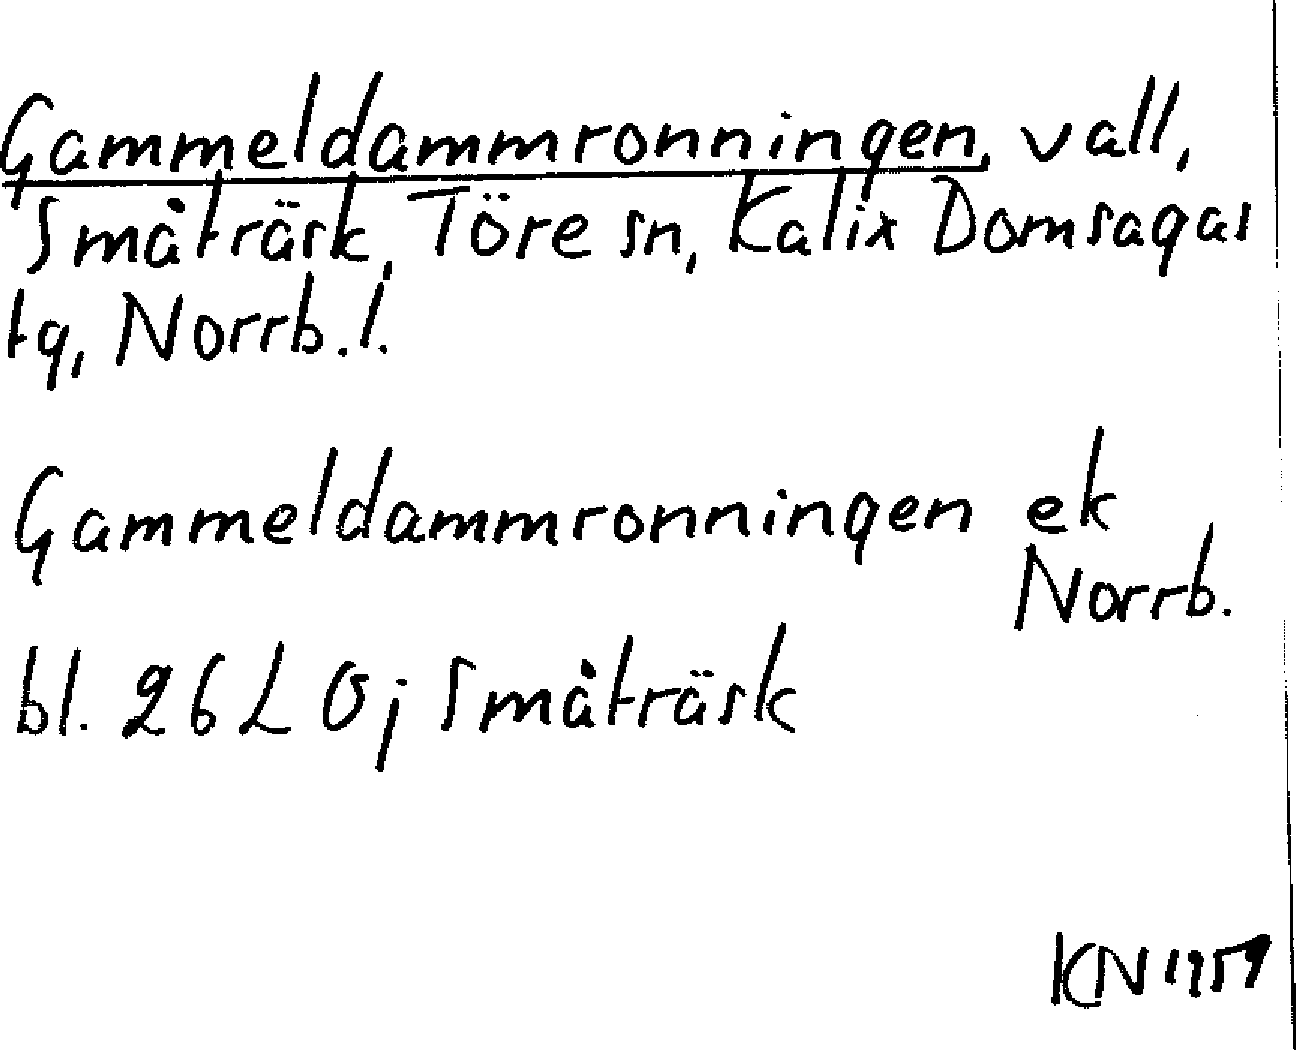 Gammeldammronningen, vall,
Småträsk, Töre sn, Kalix Domsagas
tg, Norrb. l.
Gammeldammronningen ek
Norrb.
bl. 26 L 0j Småträsk
KN